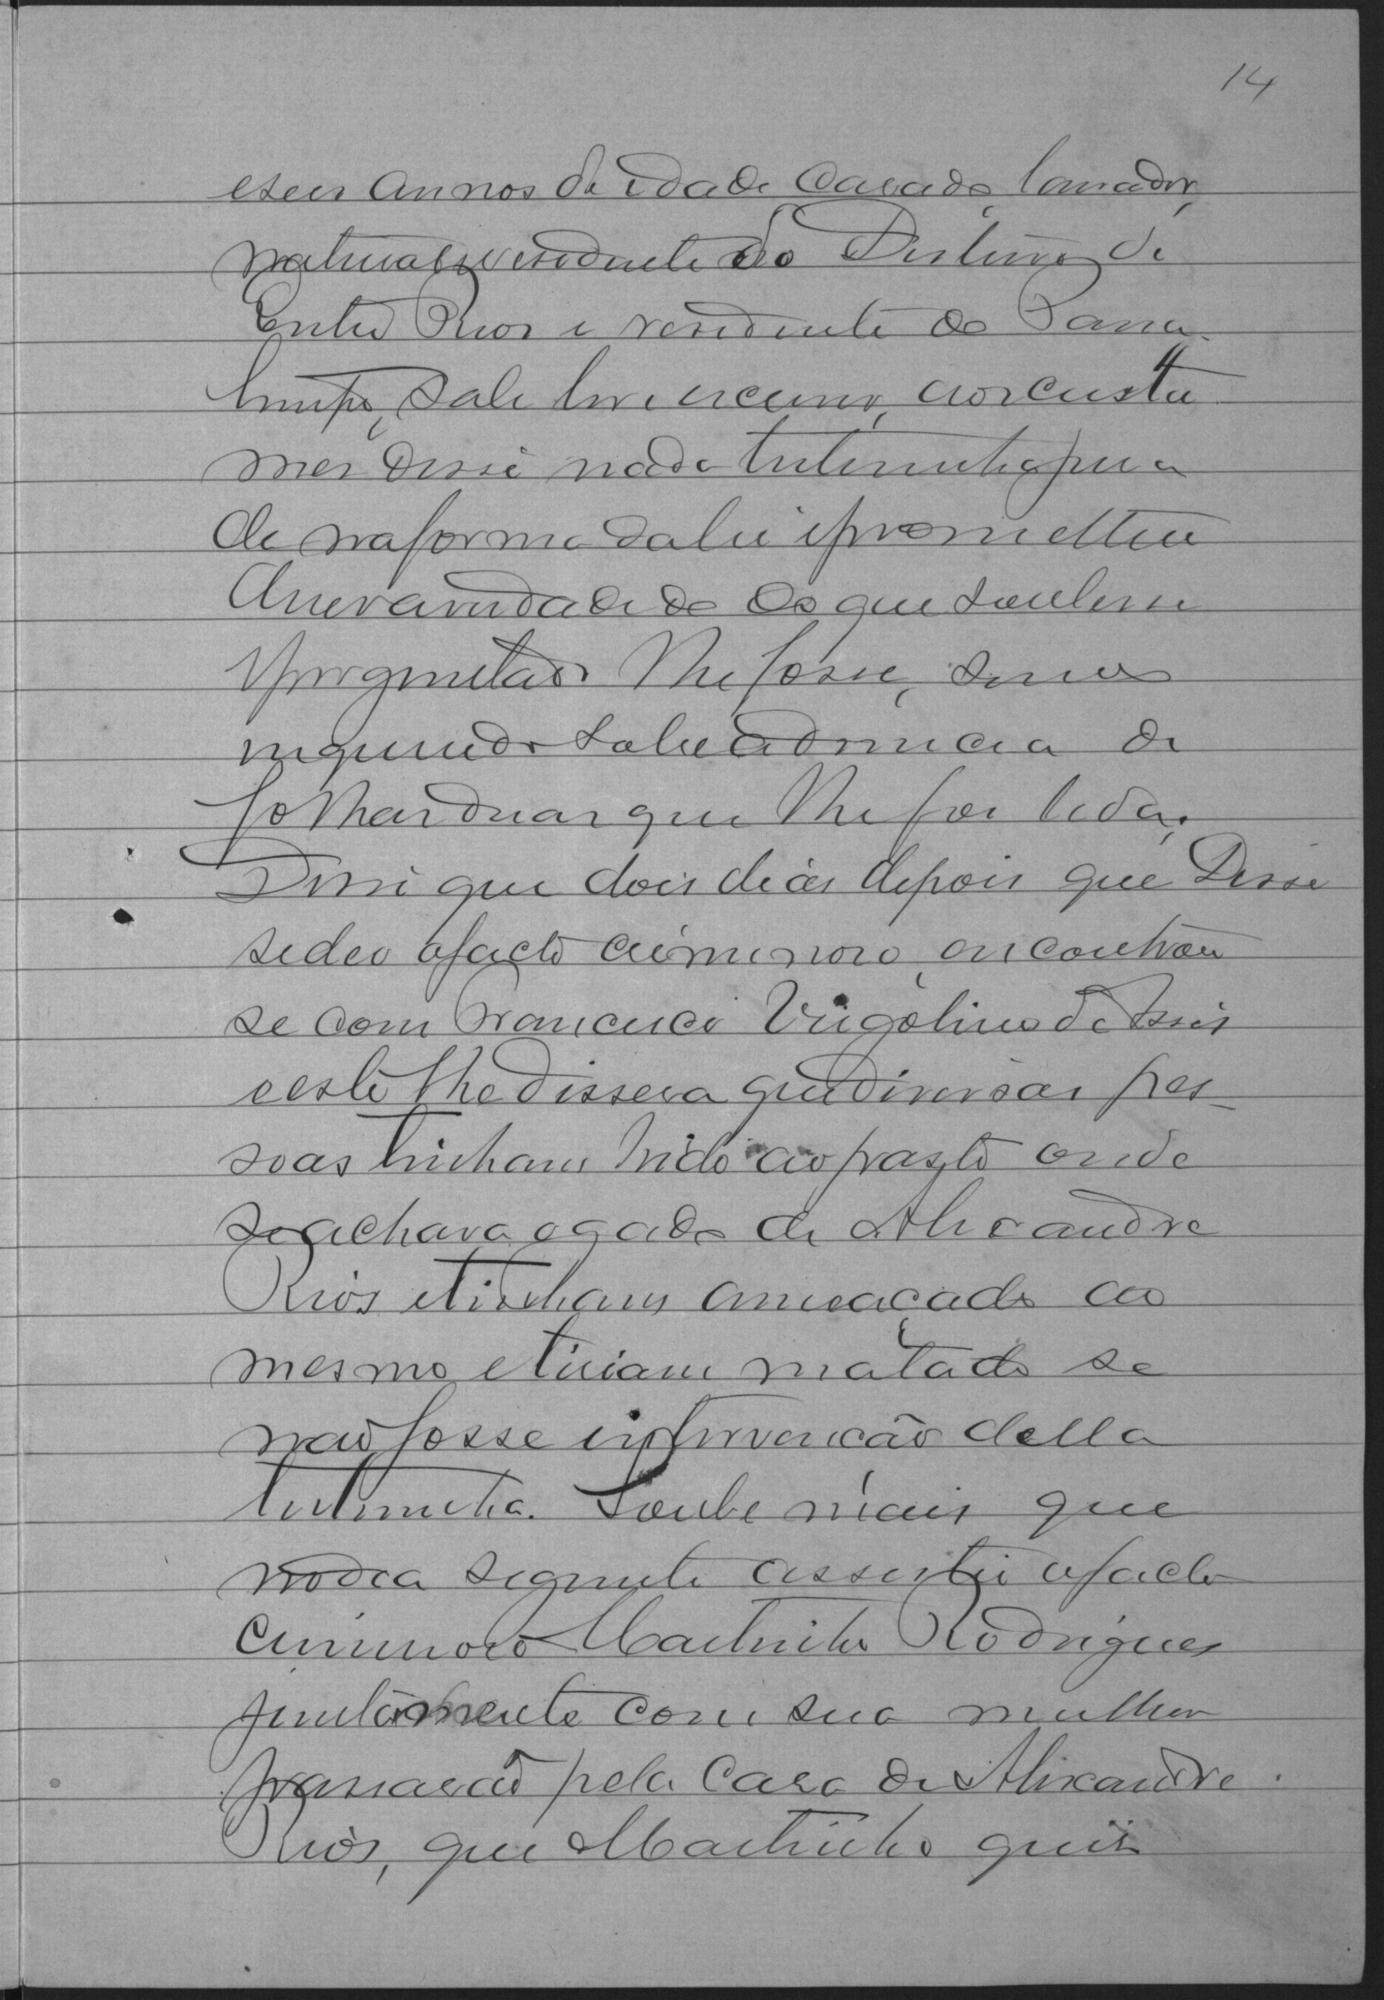 14
e seis annos de idade casado, lavrador,
natural e residente do Districto de
Entre Rios e residente do Para
hupe, sabe ler e escrever, aos costu
mes disse nada testemunha jura
da na forma da lei e prometteu
dizer a verdade do que soubesse
e perguntado lhe fosse, sendo
inquerido sobre a denuncia de
folhas duas que lhe foi lida.
Disse que dois dias depois que Disse
se deu o facto criminoso, encontrou
se com Francisco Virgolino de Assis
e este lhe dissera que diversas pes-
soas tinham hido ao pasto onde
se achava o gado de Alexandre
Rios e tinham ameaçado ao
mesmo e tiriam matado se
não fosse intervencão della
testemunha. Soube mais que
no dia seguinte a esse o facto
criminoso Martinho Rodrigues
juntamente com sua mulher
passarão pela casa de Alexandre
Rios, que Martinho quis